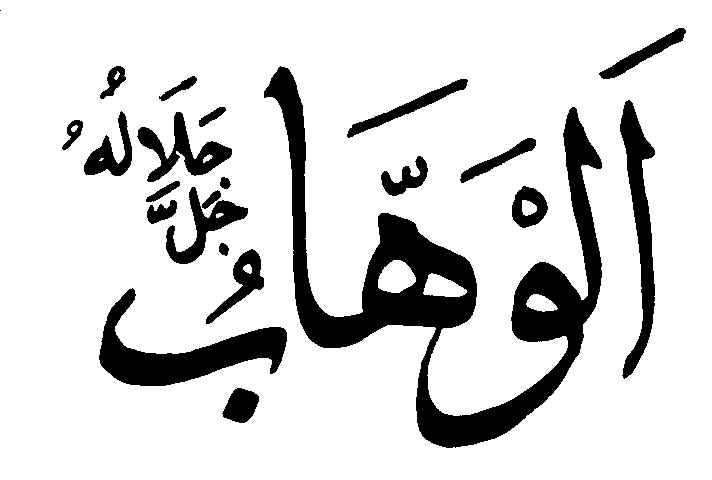 اَلْوَهَّابُ
جَلَّ جَلَالُهُ